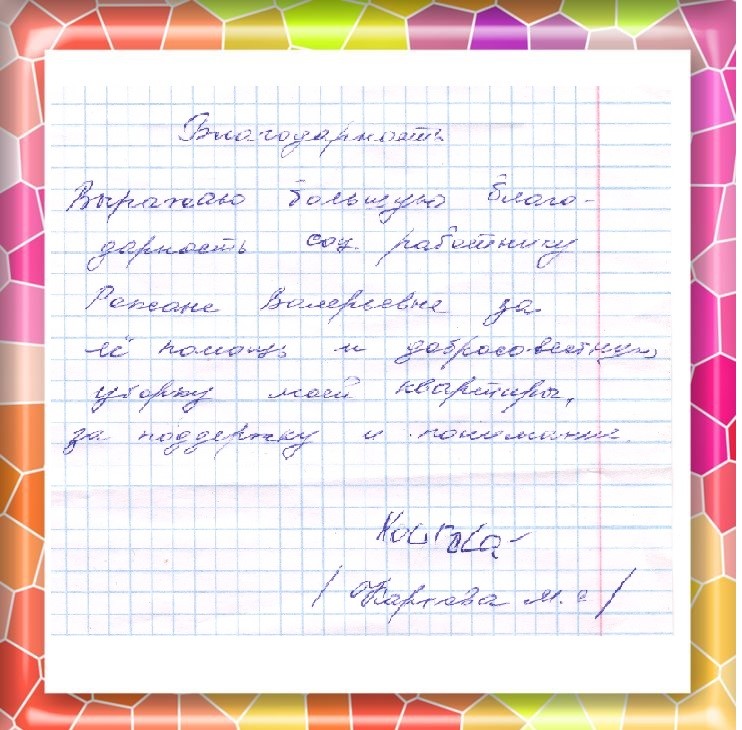 Благодарность
Выражаю большую благо-
дарность соц. работнику
Роксане Валерьевне за
её помощь и добросовестную
уборку моей квартиры,
за поддержку и понимание.